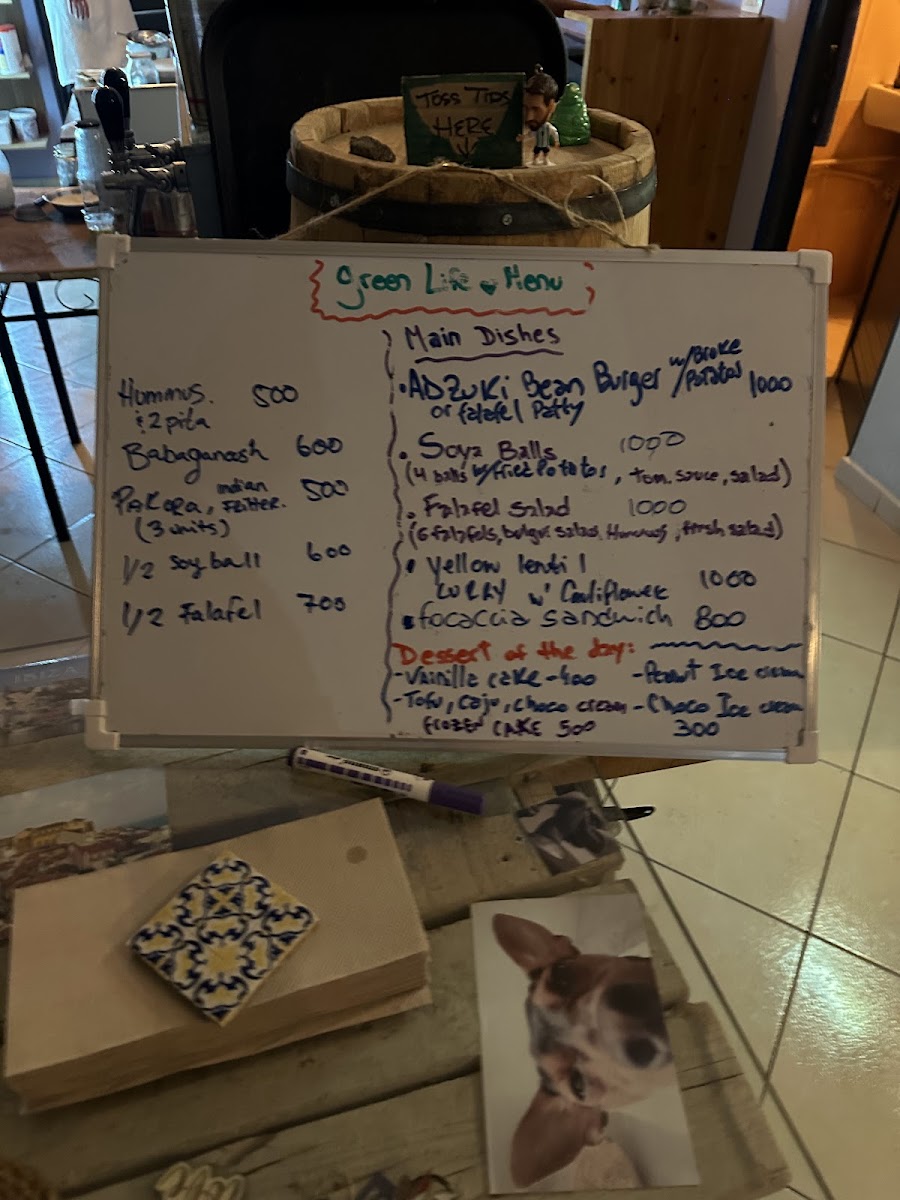 TOSS TIPS
HERE
Green Life Menu
Hummus. 500
& 2 pita
Babaganosh 600
Pakora, indian Fritter. 500
(3 units)
1/2 soy ball 600
1/2 Falafel 700
Main Dishes
• ADZUKI Bean Burger w/Broke Potatos 1000
or falafel Patty
• Soya Balls 1000
(4 balls w/Fried Potatos, tom. sauce, salad)
• Falafel salad 1000
(6 falafels, bulgur salad, Hummus, fresh salad)
• Yellow lentil
CURRY w' Cauliflower 1000
• focaccia sandwich 800
Dessert of the day:
- Vainilla cake - 400
- Tofu, caju, choco cream
frozen CAKE 500
- Peanut Ice cream
- Choco Ice cream
300